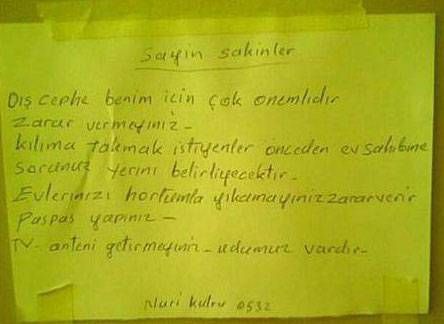 Sayın sakinler
Dış cephe benim için çok önemlidir
Zarar vermeyiniz -
Kılima takmak istiyenler önceden ev sahibine
sorunuz yerini belirliyecektir -
Evlerinizi hortumla yıkamayınız zarar verir
Paspas yapınız -
TV - anteni getirmeyiniz - udumuz vardır -
Nuri Kutru 0532